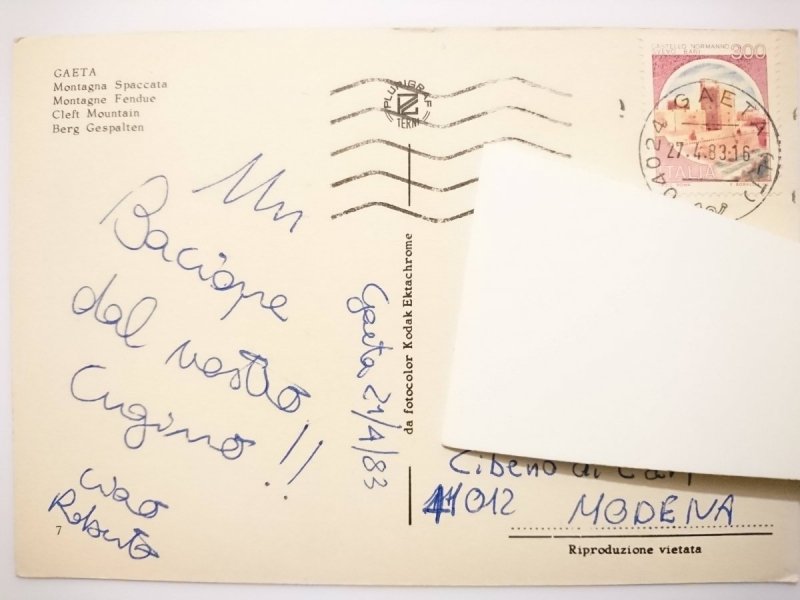 GAETA
Montagna Spaccata
Montagne Fendue
Cleft Mountain
Berg Gespalten
PLURIGRAF
TERNI
CASTELLO NORMANNO
SVEVO BARI
300
ITALIA
04024 GAETA (LT)
27.4.83·16
Un
Bacione
dal vostro
Cugino!!
ciao
Roberto
7
Gaeta 21/4/83
da fotocolor Kodak Ektachrome
Cibeno di Carp
41012 MODENA
Riproduzione vietata